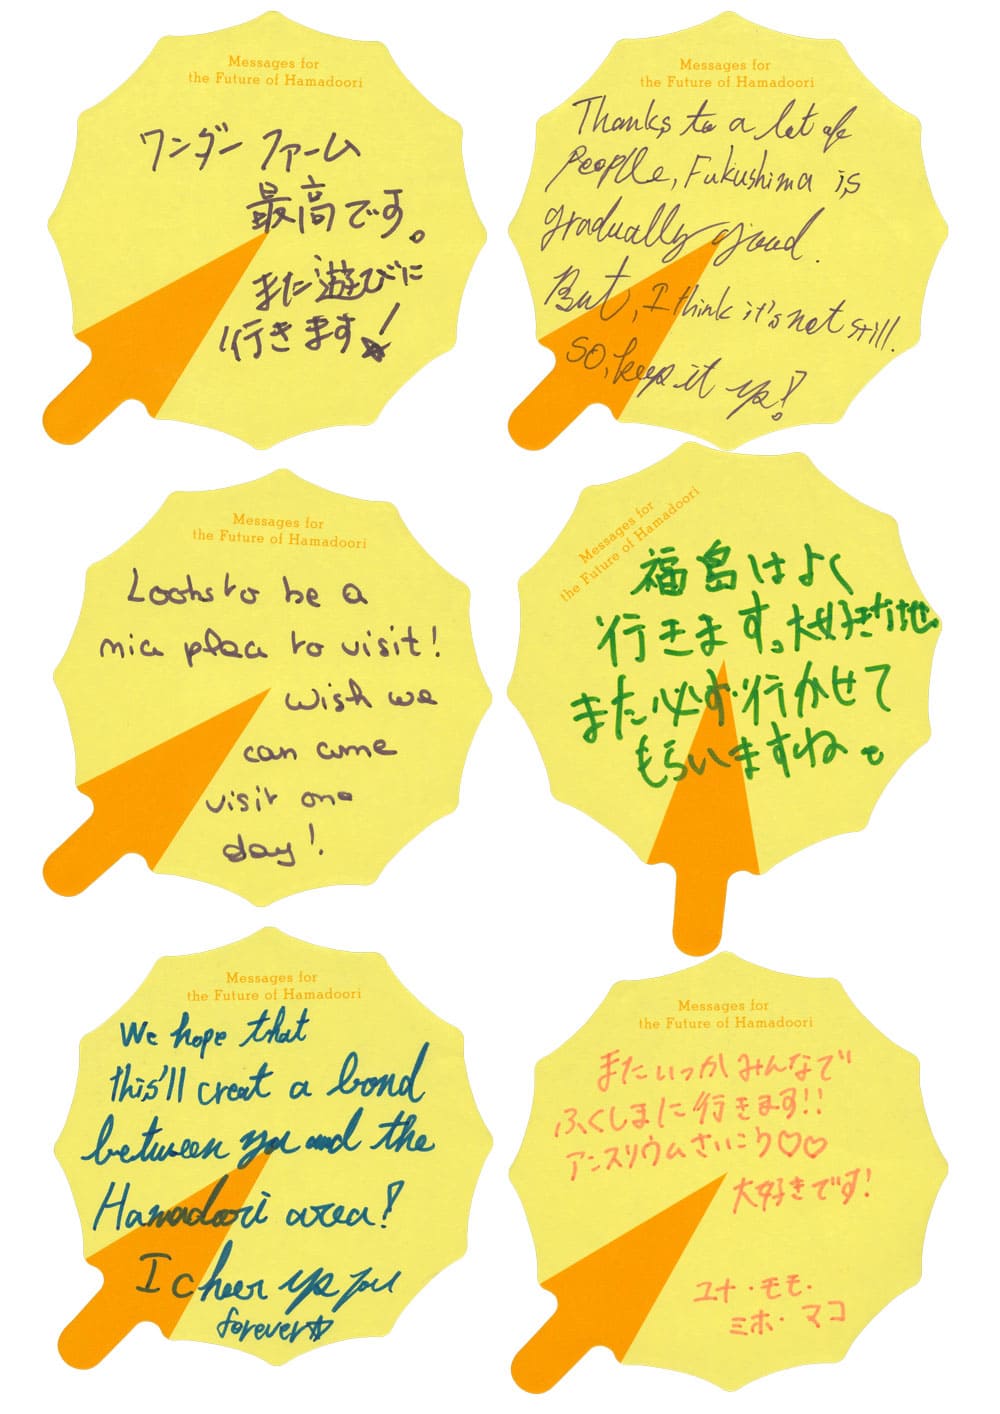 Messages for
the Future of Hamadoori
ワンダーファーム
最高です。
また遊びに
行きます!
Messages for
the Future of Hamadoori
Thanks to a lot of
Peoplle, Fukushima is
gradually good.
But, I think it's not still.
SO, keep it up!
Messages for
the Future of Hamadoori
Looks to be a
nice place to visit!
wish we
can come
visit one
day!
Messages for
the Future of Hamadoori
福島はよく
行きます。大好きな地。
また必ず行かせて
もらいますね。
Messages for
the Future of Hamadoori
We hope that
this'll creat a bond
between you and the
Hamadoori area!
I cheer up you
forever☆
Messages for
the Future of Hamadoori
またいつかみんなで
ふくしまに行きます!!
アンスリウムさいこう♡♡
大好きです!
ユナ・モモ・
ミホ・マコ